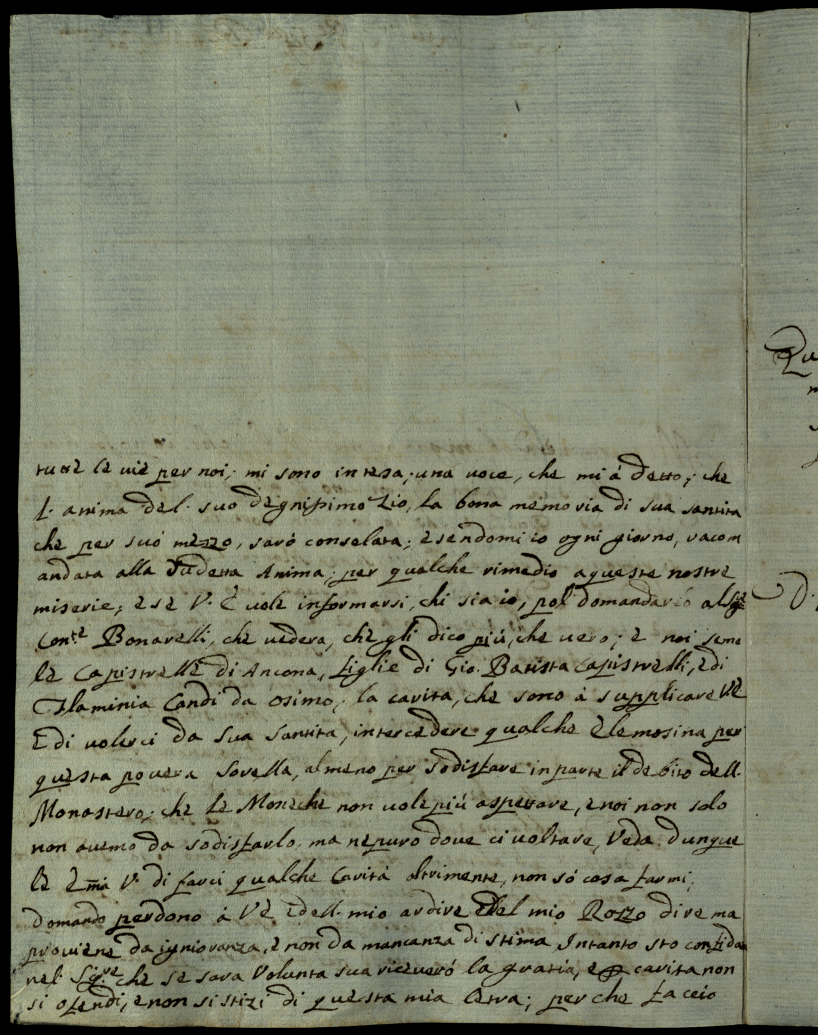 tutte le vie per noi; mi sono intesa, una voce, che mi à detto, che
l'anima del suo degnissimo Zio, la bona memoria di sua santita
che per suo mezzo, sarò consolata; esendomi io ogni giorno, racom
andata alla sudetta Anima, per qualche rimedio aqueste nostre
miserie, e se V. E vole informarsi, chi sia io, pol domandarlo al Sigre
Conte Bonarelli, che vedera, che gli dico più, che vero; e noi semo
le Capistrelle di Ancona, figlie di Gio. Batista Capistrelli, e di
Flaminia Candi da osimo, la carita, che sono à supplicare VE
E di volerci da Sua Santita, intercedere qualche Elemosina per
questa povera Sorella, almeno per sodisfare in parte il debito dell.
Monastero, che le Moneche non vole più aspetare, e noi non solo
non avemo da sodisfarlo, ma nepuro dove ci voltare, Veda dunque
le Ema V. di farci qualche Carità altrimente, non só cosa farmi,
Domando perdono à VE Edell. mio ardire del mio Rozzo dire ma
proviene da igniovanza, e non da mancanza di stima Intanto sto confida
nel Sigre che se sara Volunta sua riceveró la gratia, e carita non
si ofendi, e non si stizi di questa mia letra; perche faccio
Qu
D.